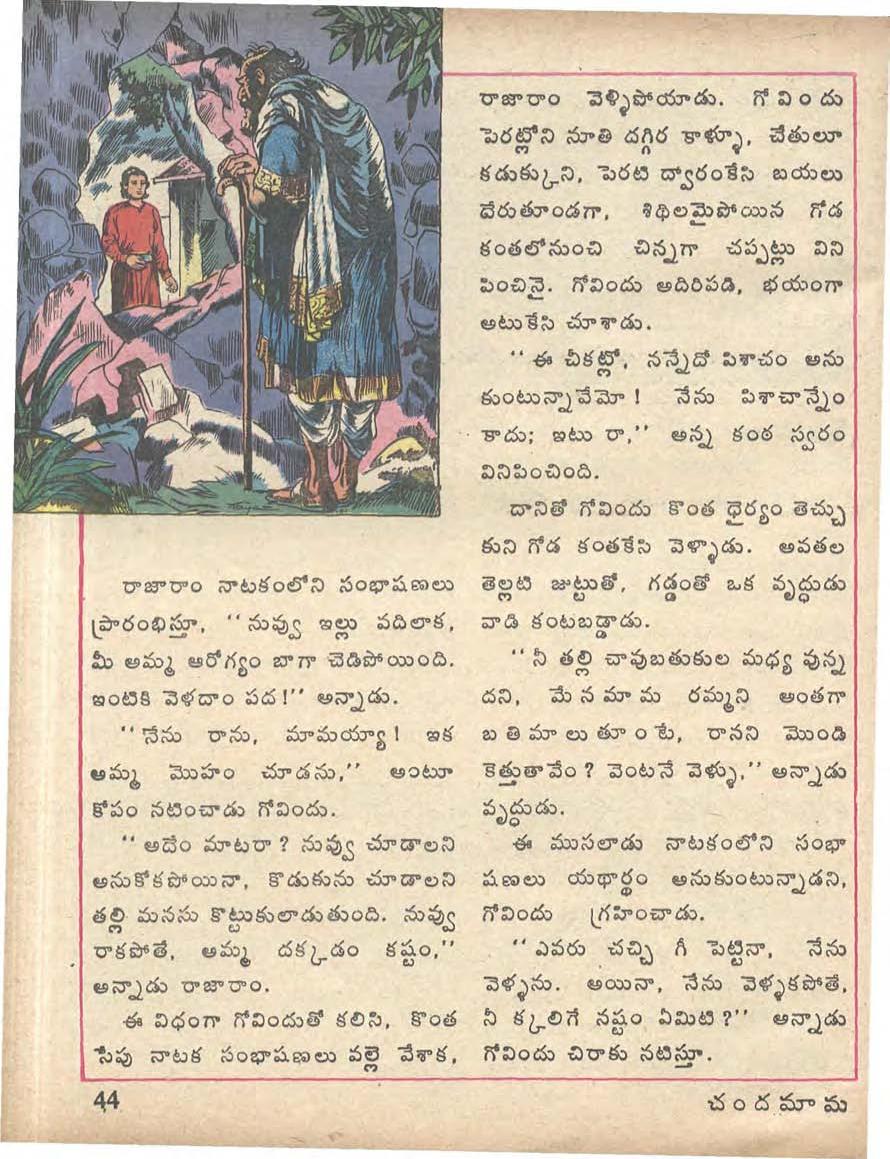 రాజారాం నాటకంలోని సంభాషణలు
ప్రారంభిస్తూ, "నువ్వు ఇల్లు వదిలాక,
మీ అమ్మ ఆరోగ్యం బాగా చెడిపోయింది.
ఇంటికి వెళదాం పద!" అన్నాడు.
"నేను రాను, మామయ్యా! ఇక
అమ్మ మొహం చూడను," అంటూ
కోపం నటించాడు గోవిందు.
"అదేం మాటరా? నువ్వు చూడాలని
అనుకోకపోయినా, కొడుకును చూడాలని
తల్లి మనసు కొట్టుకులాడుతుంది. నువ్వు
రాకపోతే, అమ్మ దక్కడం కష్టం,"
అన్నాడు రాజారాం.
ఈ విధంగా గోవిందుతో కలిసి, కొంత
సేపు నాటక సంభాషణలు వల్లె వేశాక,
రాజారాం వెళ్ళిపోయాడు. గోవిందు
పెరట్లోని నూతి దగ్గిర కాళ్ళూ, చేతులూ
కడుక్కుని, పెరటి ద్వారంకేసి బయలు
దేరుతూండగా, శిథిలమైపోయిన గోడ
కంతలోనుంచి చిన్నగా చప్పట్లు విని
పించినై. గోవిందు అదిరిపడి, భయంగా
అటుకేసి చూశాడు.
"ఈ చీకట్లో, నన్నేదో పిశాచం అను
కుంటున్నావేమో! నేను పిశాచాన్నేం
కాదు; ఇటు రా," అన్న కంఠ స్వరం
వినిపించింది.
దానితో గోవిందు కొంత ధైర్యం తెచ్చు
కుని గోడ కంతకేసి వెళ్ళాడు. అవతల
తెల్లటి జుట్టుతో, గడ్డంతో ఒక వృద్ధుడు
వాడి కంటబడ్డాడు.
"నీ తల్లి చావుబతుకుల మధ్య వున్న
దని, మేనమామ రమ్మని అంతగా
బతిమాలుతూంటే, రానని మొండి
కెత్తుతావేం? వెంటనే వెళ్ళు," అన్నాడు
వృద్ధుడు.
ఈ ముసలాడు నాటకంలోని సంభా
షణలు యథార్థం అనుకుంటున్నాడని,
గోవిందు గ్రహించాడు.
"ఎవరు చచ్చి గీ పెట్టినా, నేను
వెళ్ళను. అయినా, నేను వెళ్ళకపోతే,
నీ క్కలిగే నష్టం ఏమిటి?" అన్నాడు
గోవిందు చిరాకు నటిస్తూ.
44
చందమామ